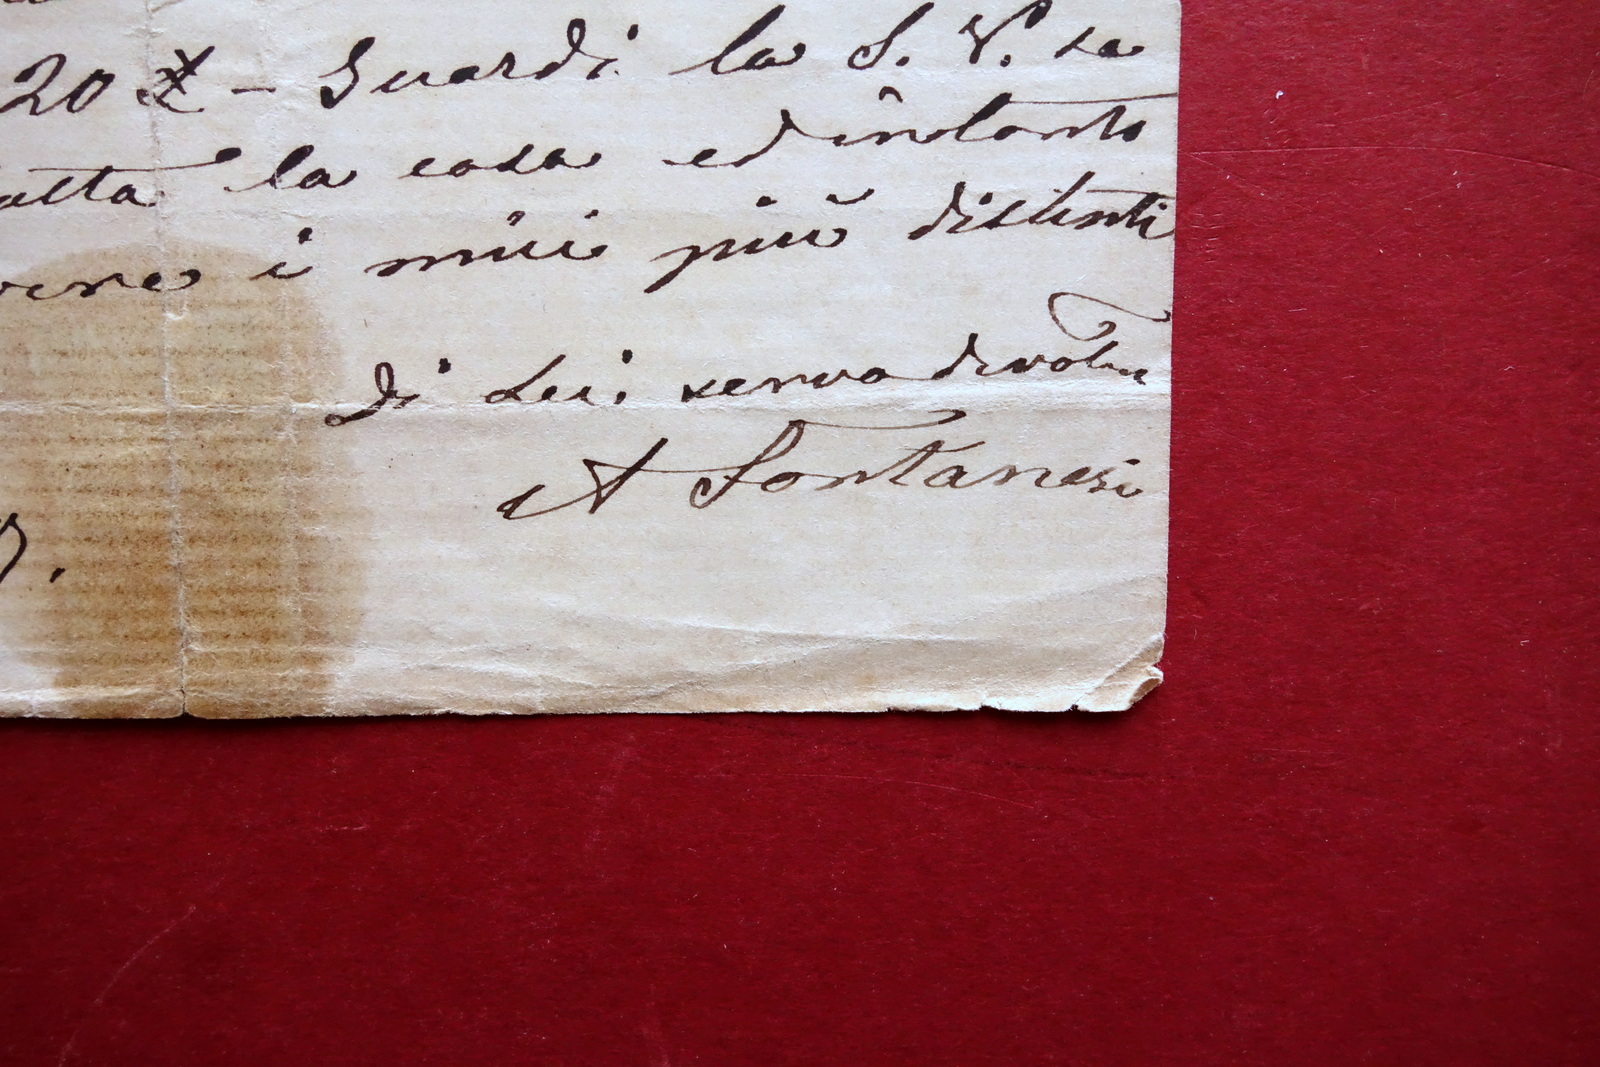 20 £ - Guardi la S. V. se
atta la cosa ed intanto
vere i miei più distinti
Di Lei servo devotmo
A Fontanesi